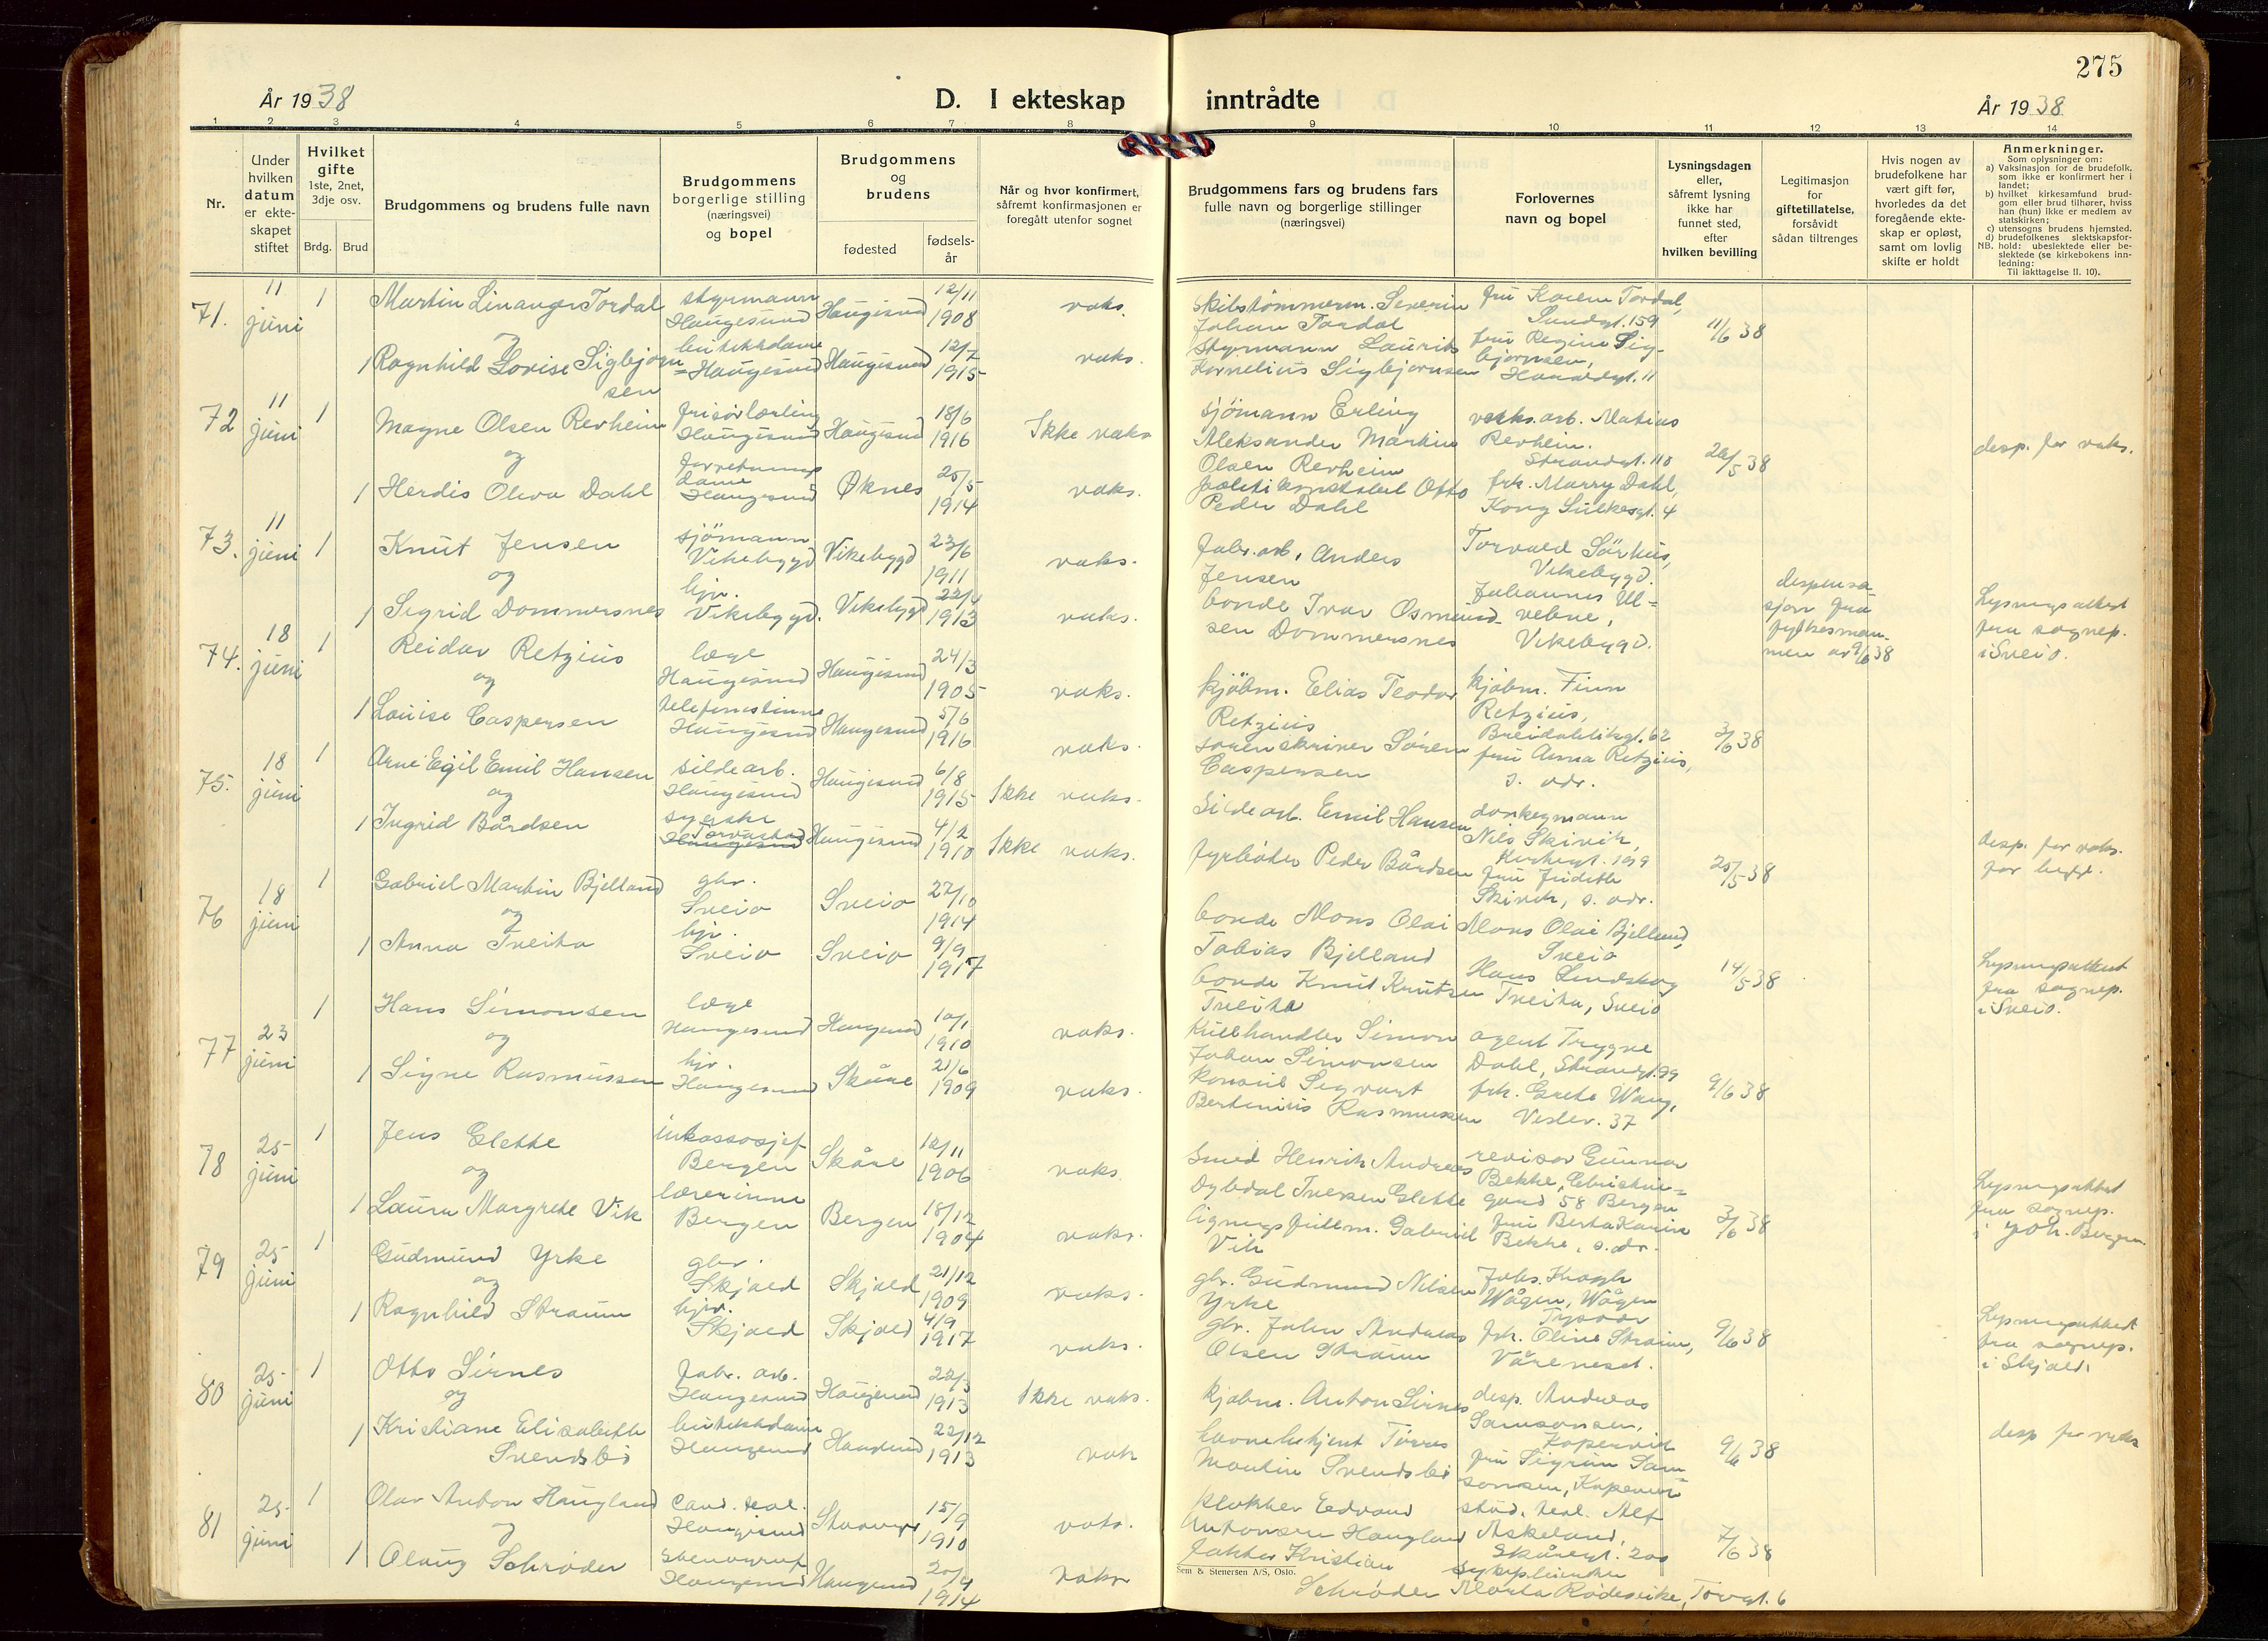 275
År 1938
D. I ekteskap inntrådte
År 1938
1 2 3 4 5 6 7 8 9 10 11 12 13 14
Nr.
Under hvilken datum er ekteskapet stiftet
Hvilket gifte
1ste, 2net, 3dje osv.
Brdg. Brud
Brudgommens og brudens fulle navn
Brudgommens borgerlige stilling (næringsvei) og bopel
Brudgommens og brudens
fødested
fødselsår
Når og hvor konfirmert, såfremt konfirmasjonen er foregått utenfor sognet
Brudgommens fars og brudens fars fulle navn og borgerlige stillinger (næringsvei)
Forlovernes navn og bopel
Lysningsdagen eller, såfremt lysning ikke har funnet sted, efter hvilken bevilling
Legitimasjon for giftetillatelse, forsåvidt sådan tiltrenges
Hvis nogen av brudefolkene har vært gift før, hvorledes da det foregående ekteskap er opløst, samt om lovlig skifte er holdt
Anmerkninger.
Som oplysninger om:
a) Vaksinasjon for de brudefolk, som ikke er konfirmert her i landet;
b) hvilket kirkesamfund brudgom eller brud tilhører, hviss han (hun) ikke er medlem av statskirken;
c) utensogns brudens hjemsted.
d) brudefolkenes slektskapsforhold: ubeslektede eller beslektede (se kirkebokens innledning:
NB.
Til iakttagelse II. 10).
71. 11 juni 1 Martin Linanger Tordal styrmann Haugesund Haugesund 12/11 1908 vaks. skibstømmerm. Severin Johan Tordal fru Karen Tordal, Sundgt. 159 11/6 38
og
1 Ragnhild Lovise Sigbjørnsen butikkdame Haugesund Haugesund 12/7 1915 vaks. styrmann Laurits Kornelius Sigbjørnsen fru Regine Sigbjørnsen, Haraldsgt. 11
72 11 juni 1 Magne Olsen Revheim frisørlærling Haugesund Haugesund 18/6 1916 Ikke vaks sjømann Erling Aleksander Martin Olsen Revheim verks.arb. Matias Revheim. Strandgt. 118 26/5 38 desp. for vaks.
og
1 Herdis Oliva Dahl forretningsdame Haugesund Øknes 25/5 1914 vaks. politikonstabel Otto Peder Dahl frk. Marry Dahl, Kong Sulkesgt. 4
73. 11 juni 1 Knut Jensen sjømann Vikebygd Vikebygd 23/6 1911 vaks. fabr. arb. Anders Jensen Torvald Sørhus, Vikebygd.
og
1 Sigrid Dommersnes hjv. Vikebygd. Vikebygd 22/4 1913 vaks. bonde Ivar Osmundsen Dommersnes Johannes Ulvebne, Vikebygd. despensasjon fra fylkesmannen av 9/6 38 Lysningsattest fra sognep. i Sveio.
74. 18 juni 1 Reidar Retzius læge Haugesund Haugesund 24/3 1905 vaks. kjøbm. Elias Teodor Retzius kjøbm. Finn Retzius, Breidablikgt. 62 3/6 38
og
1 Louise Caspersen telefonistinne Haugesund Haugesund 5/6 1916 vaks. sorenskriver Søren Caspersen fru Anna Retzius, s. adr.
75. 18 juni 1 Arne Egil Emil Hansen sildearb. Haugesund Haugesund 6/8 1915 Ikke vaks. Sildearb. Emil Hansen donkeymann Nils Skivik, Kirkegt. 199 25/5 38 desp. for vaks. for begge.
og
1 Ingrid Bårdsen syerske Torvastad Haugesund Haugesund 4/2 1910 Ikke vaks. fyrbøter Peder Bårdsen fru Judith Skivik, s. adr.
76 18 juni 1 Gabriel Martin Bjelland gbr. Sveio Sveio 27/10 1914 bonde Mons Olai Tobias Bjelland Mons Olai Bjelland, Sveio 14/5 38 Lysningsattest fra sognep. i Sveio.
og
1 Anna Tveita hjv. Sveio Sveio 9/9 1917 bonde Knut Knutsen Tveita Hans Lindskog Tveita, Sveio
77 23 juni 1 Hans Simonsen læge Haugesund Haugesund 10/1 1910 vaks. kullhandler Simon Johan Simonsen agent Trygve Dahl, Strandgt. 99 9/6 38
og
1 Signe Rasmussen hjv. Haugesund Skåre 21/6 1909 vaks. konsul Sigvart Bertinius Rasmussen frk. Grete Wang, Vestev. 37
78 25 juni 1 Jens Glette inkassosjef Bergen Skåre 12/11 1906 vaks. smed Henrik Andreas Dybdal Iversen Glette revisor Gunnar Bekke, Christiegard 58 Bergen 3/6 38 Lysningsattest fra sognep. i Joh. Bergen
og
1 Laura Margrete Vik lærerinne Bergen Bergen 18/12 1904 vaks. ligningsfullm. Gabriel Vik fru Berta Karin Bekke, s. adr.
79 25 juni 1 Gudmund Yrke gbr. Skjold Skjold 21/12 1909 vaks. gbr. Gudmund Nilsen Yrke Johs. Krogh Wågen, Wågen Tysvær 9/6 38 Lysningsattest fra sognep. i Skjold.
og
1 Ragnhild Straum hjv. Skjold Skjold 4/9 1917 vaks. gbr. John Andreas Olsen Straum frk. Oline Straum, Våreneset.
80 25 juni 1 Otto Sirnes fabr. arb. Haugesund Haugesund 22/3 1913 Ikke vaks. kjøbm. Anton Sirnes desp. Andreas Samsonsen, Kopervik 9/6 38 desp for vaks
og
1 Kristiane Elisabeth Svendsbø butikkdame Haugesund Haugesund 22/12 1913 vaks havnebetjent Tørres Martin Svendsbø fru Sigrun Samsonsen, Kopervik
81 25 juni 1 Olav Anton Haugland cand. teol. Haugesund Stavanger 15/9 1910 vaks. klokker Edvard Antonsen Haugland stud. teol. Alf Askeland, Skåregt. 200 7/6 38
og
1 Olaug Schrøder stenograf Haugesund Haugesund 20/4 1914 vaks doktor Kristian Schrøder sykepleierske Marta Rødesike, Torvgt. 6
Sem & Stenersen A/S, Oslo.